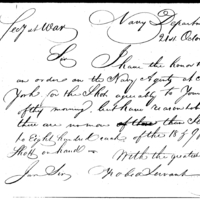 Secy of War
Navy Departm
21st Octo
Sir
I have the honor
an order on the Navy Agent at
York for the Shot agreeably to Your
of this morning, but have reason to b
there are no more than then S
to Eight hundred each of the 18 & 9
Shott on hand
With the greatest
I am Sir
Yo obd Servant